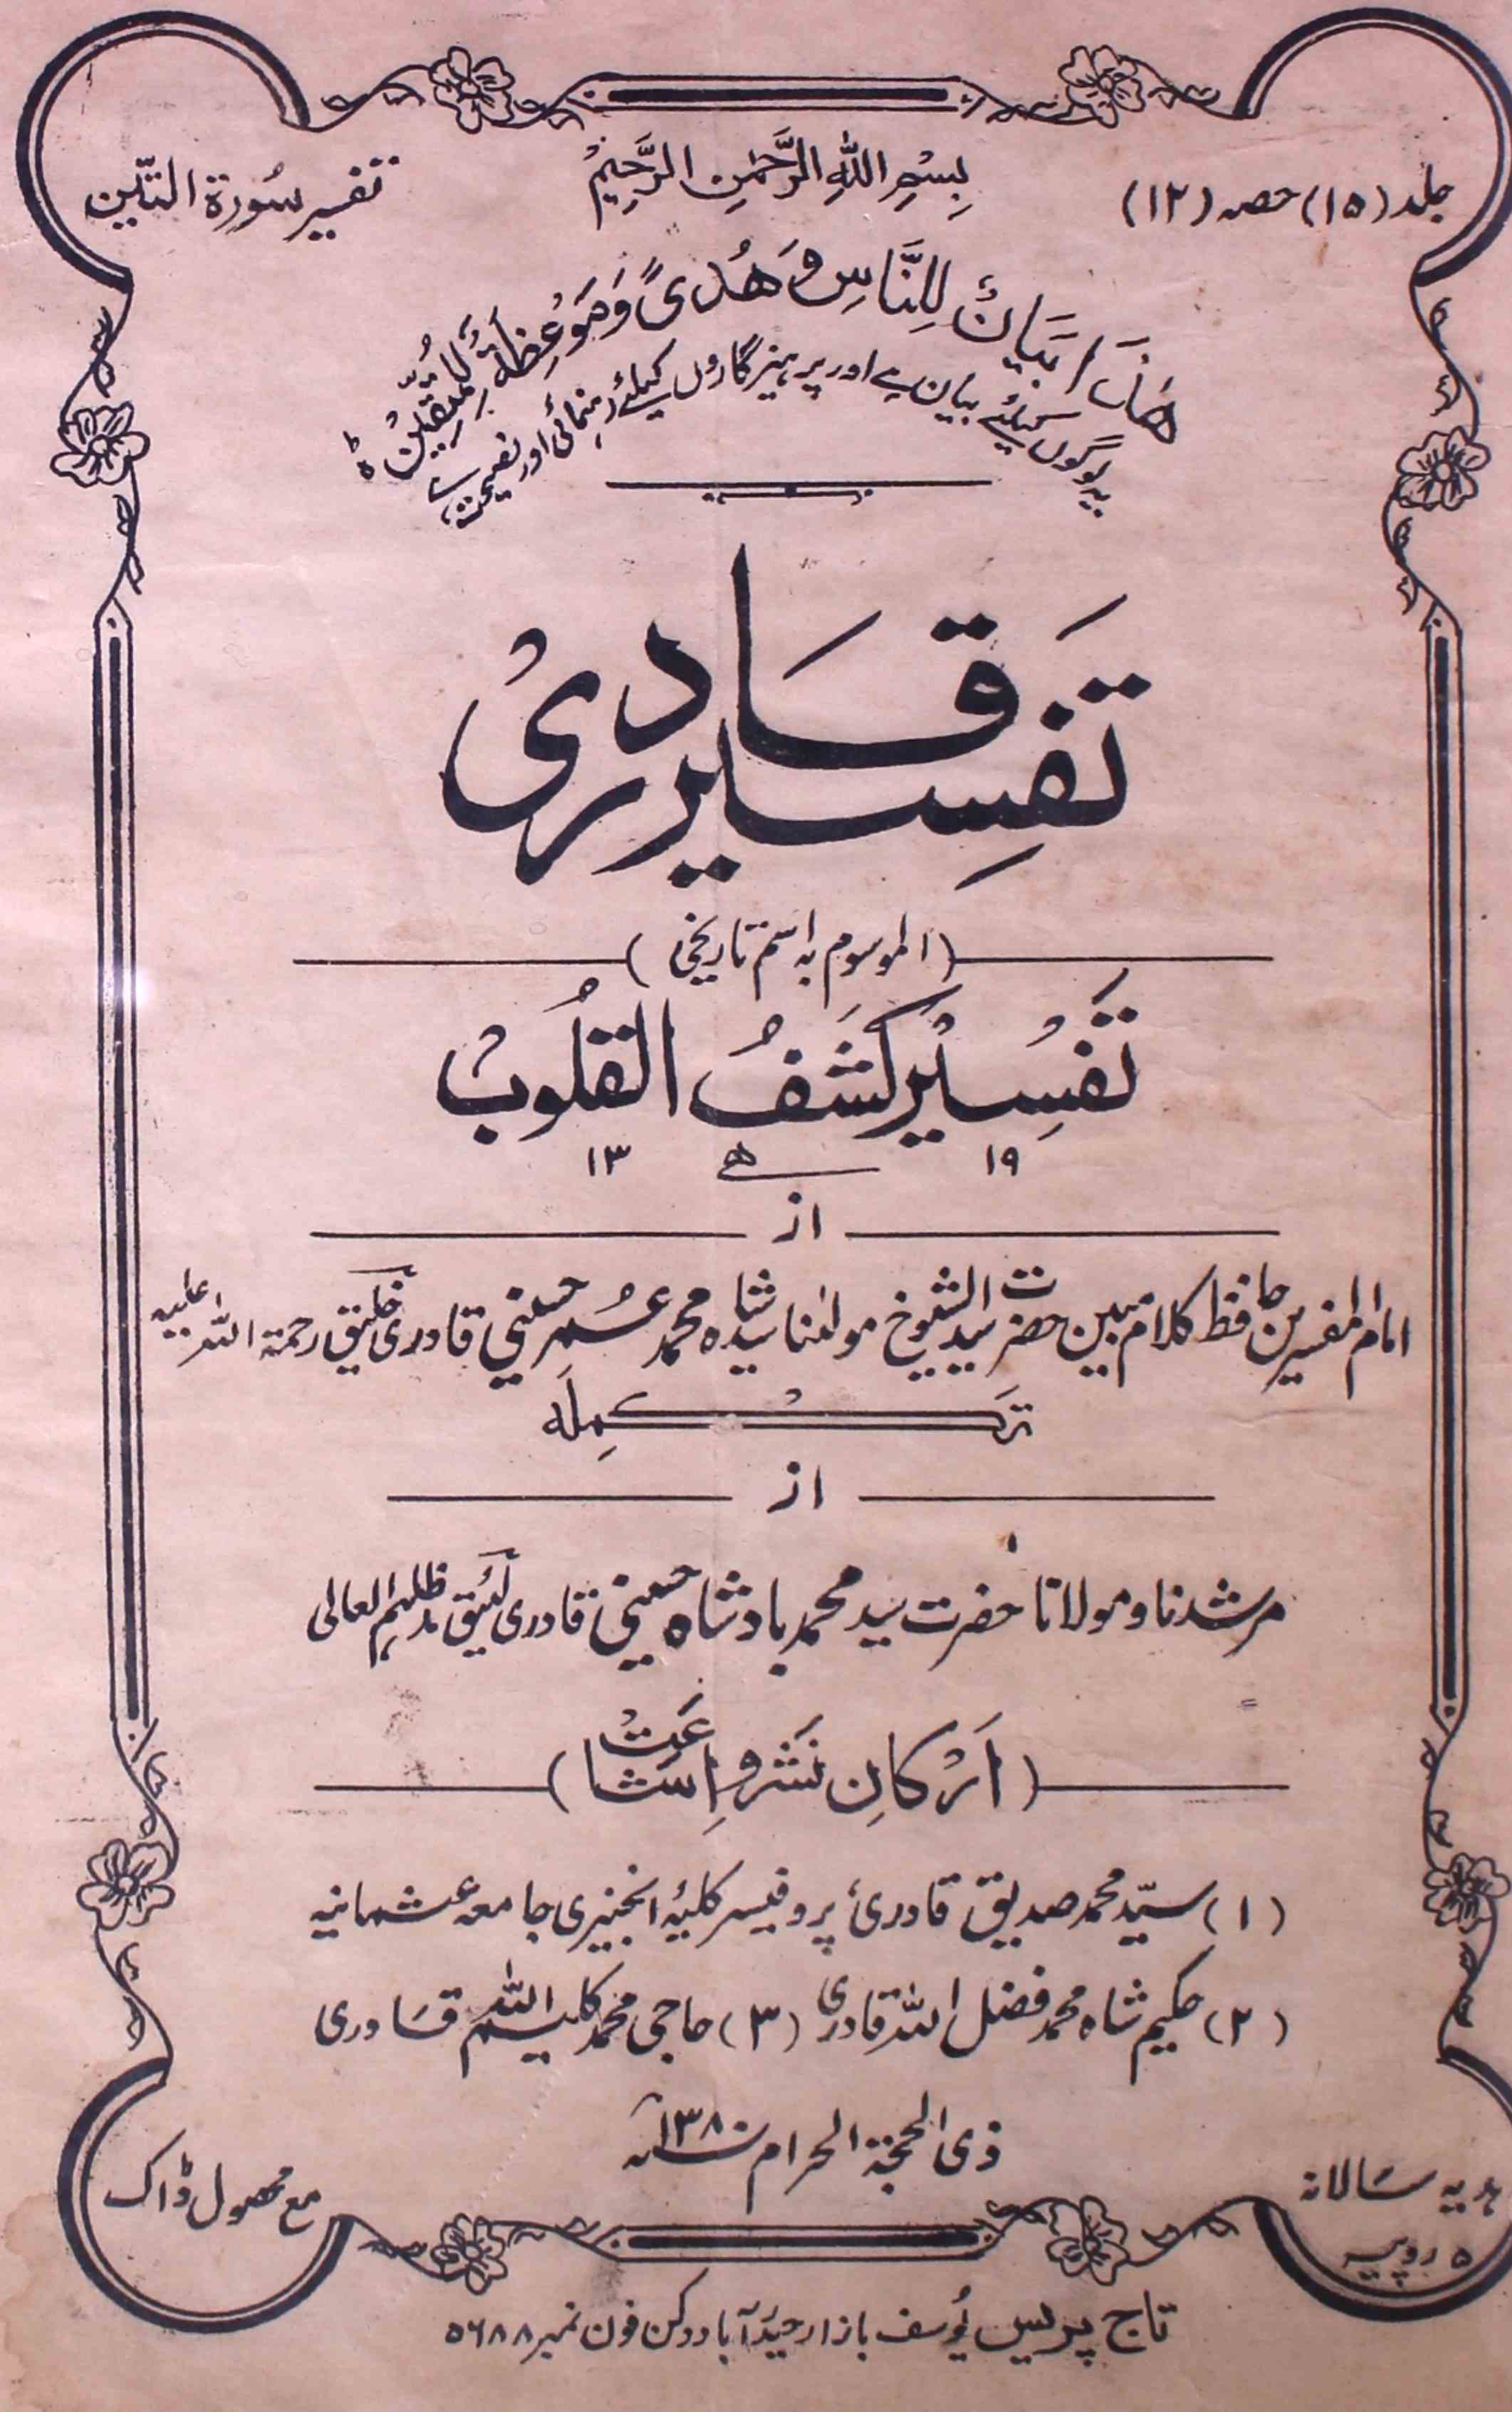 جلد (۱۵) حصہ (۱۲)
بِسْمِ اللهِ الرَّحْمٰنِ الرَّحِيْمْ
تفسیر سُورۃ التّین
هٰذَا بَيَانٌ لِلنَّاسِ وَهُدًى وَمَوْعِظَةٌ لِّلْمُتَّقِيْنَ ؕ
یہ لوگوں کیلئے بیان ہے اور پرہیز گاروں کیلئے رہنمائی اور نصیحت ہے
تَفسِیر قَادری
(الموسوم بہ اسم تاریخی)
تَفْسِیْر کَشَفُ القُلُوبْ
۱۹ ھ ۱۳
از
امام المفسرین حافظ کلام مبین حضرت سید الشیوخ مولٰنا سید شاہ محمد عُمر حسینی قادری خلیق رحمۃ اللہ علیہ
تَکْمِلَہ
از
مرشدنا و مولانا حضرت سید محمد بادشاہ حسینی قادری لئیق مدظلہم العالی
(اَرْکانِ نَشَر و اِشَاعَتْ)
(۱) سیّد محمد صدیق قادری پروفیسر کلیۂ انجنیری جامعہ عثمانیہ
(۲) حکیم شاہ محمد فضل اللہ قادری (۳) حاجی محمد کلیم اللہ قادری
ذی الحجۃ الحرام ۱۳۸۰ھ
ہدیہ سَالانہ
۵ روپیہ
مع محصول ڈاک
تاج پریس یُوسف بازار حیدرآباد دکن فون نمبر ۵۶۸۸